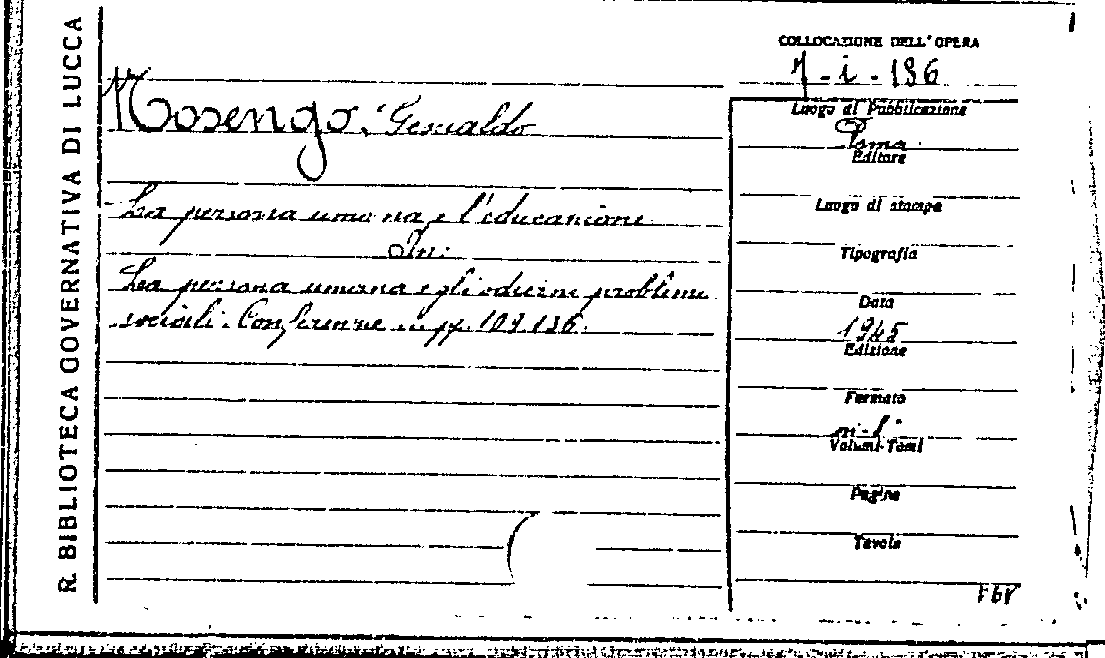 R. BIBLIOTECA GOVERNATIVA DI LUCCA
Nosengo, Gesualdo
La persona umana e l'educazione
In:
La persona umana e gli odierni problemi
sociali. Conferenze pp. 109 136.
COLLOCAZIONE DELL'OPERA
7 - i - 136
Luogo di Pubblicazione
Roma
Editore
Luogo di stampa
Tipografia
Data
1945
Edizione
Formato
in-8°
Volumi-Tomi
Pagine
Tavole